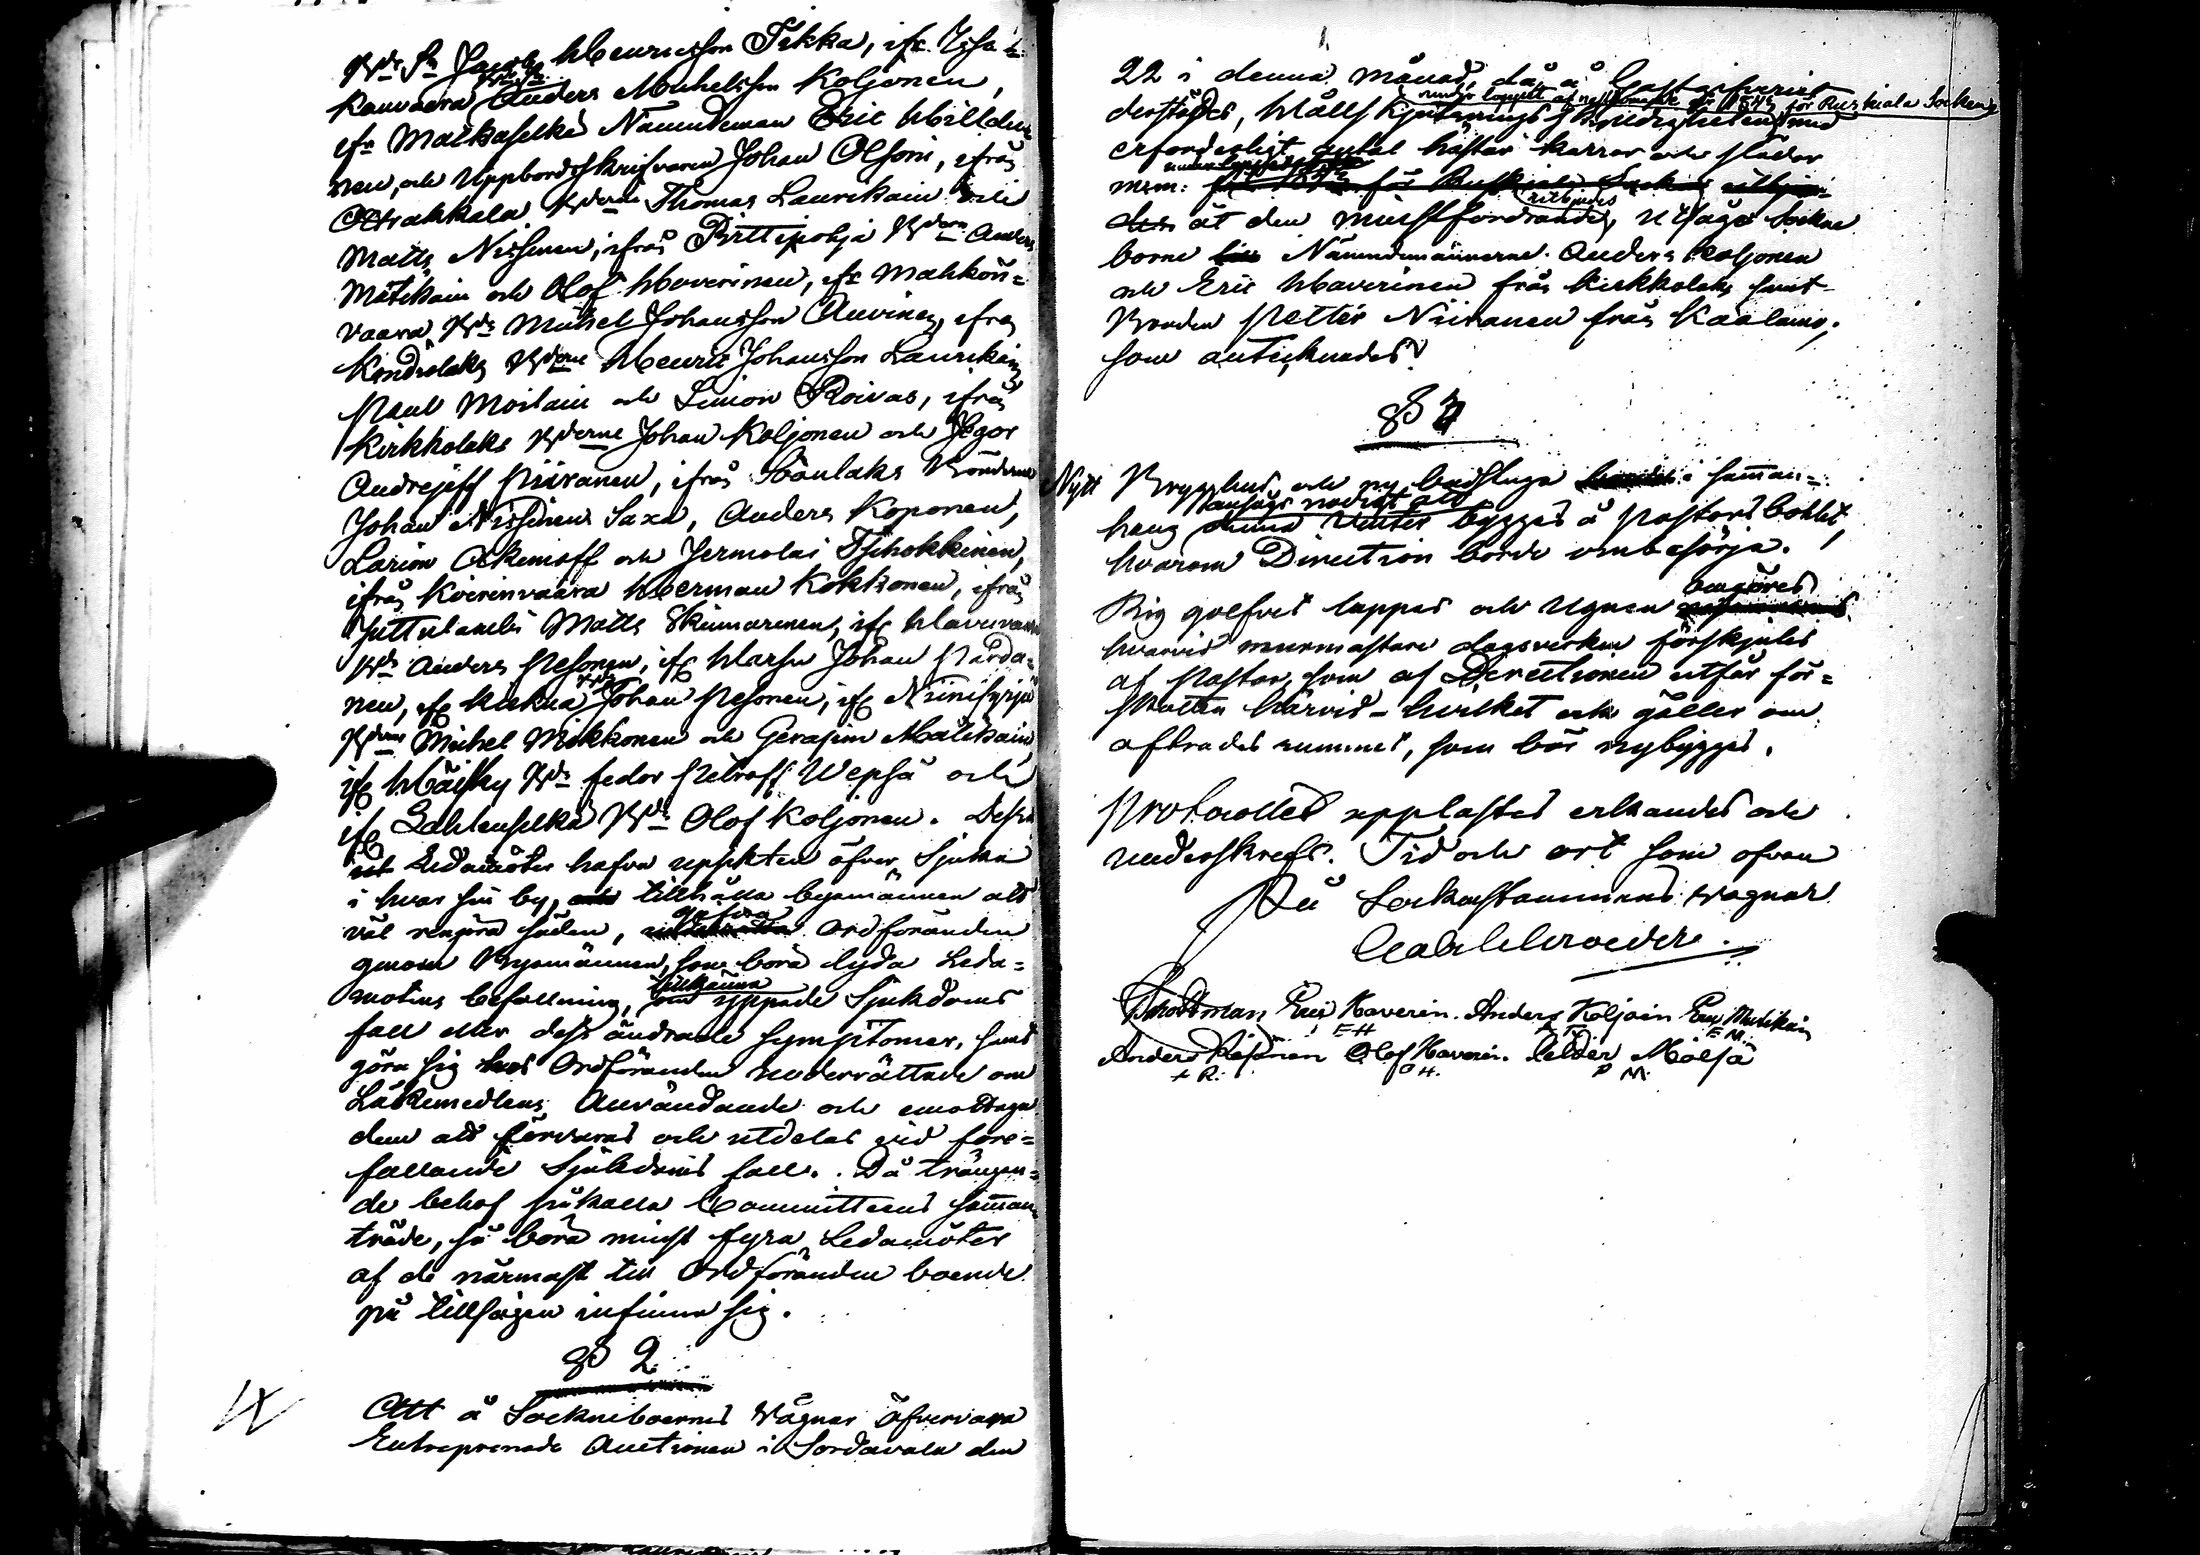 Bde Sn Jacob Henricsson Tikka, ifr.
kanvaara Bde Sn Anders Michelsson Koljonen,
ifr Matkaselkä Nämndeman Eric Hilldu-
nen, och Uppbördsskrifvaren Johan Olsoni, ifrån
Otrakkala Bderne Thomas Laurikain och
Matts Nissinen, ifrån Pirttipohja Bdern Anders
Mätikain och Olof Haverinen, ifr Mahkon-
vaara Bde Michel Johansson Auvinen, ifrån
Kondiolaks Bderne Henric Johansson Laurikain
Paul Moilain och Simon Roivas, ifrån
Kirkkolaks Bderne Johan Koljonen och Jegor
Andrejeff Piiranen, ifrån Soanlaks Bönderne
Johan Nissinen Saxa, Anders Koponen,
Larion Akimoff och Jermolai Tschokkinen,
ifrån Koirinvaara Herman Kokkonen, ifrån
Matts Ikiimarinen, ifr
Bde Anders Pesonen, ifr Harsu Johan Pärda-
nen, ifr Kukua Bde Johan Pesonen, ifr Niinisyrjä
Bderne Michel Mikkonen och Gerasim Matikain,
ifr Höisky Bde Fedor Petroff Wepsä och
ifr Sahlenselkä Bde Olof Koljonen. Dessa
Ledamöter hafva uppsikten öfver Sjuka
i hvar sin by, tillhålla byamännen att
väl rengöra säden, gifva Ordföranden
genom Byamännen, som böra lyda Leda-
moters befallning, tillkänna om yppade Sjukdoms
fall eller dess ändrade Symptomer, samt
göra sig hos Ordföranden underrättade om
Läkemedlens Användande och emottaga
dem att förvaras och utdelas vid före-
fallande Sjukdoms fall. Då trängan-
de behof påkalla Committeens samman-
träde, så böra minst fyra Ledamöter
af de närmast till Ordföranden boende
på tillsägen infinna sig.
§ 2
Att å Sockneboernes Vägnar öfvervara
Entreprenade Auctionen i Sordavala den
22 i denna månad, då å Gästgifveriet
under loppet af nästkommande år 184 för Ruskiala Socken
derstädes, Hållskjutsnings Skyldigheten med
erforderligt antal hästar kärror och slädar
m.m: för Ruskiala Socken
utbjudes
åt den minstfordrande, utsågo Sockne
borne Nämndemännerne Anders Koljonen
och Eric Haverinen från Kirkkolaks samt
Bonden Petter Niiranen från Kaalamo,
som antecknades.
§ 3
Nytt Brygghus och ny badstuga i samman-
ansågs nödigt att
hang denna Vinter byggas å Pastorsbohlet,
hvarom Direction borde ombesörja.
omgöres
Rig golfvet lappas och Ugnen
hvarvid murmästare dagsverken förskjutes
af Pastor, som af Directionen utfår för-
skotten härvid - hvilket och gäller om
afträdes rummet, som bör nybyggas.
Protocollet upplästes erkändes och
underskrefs. Tid och ort som ofvan
På Sockenstämmans vägnar
Schroeder.
Thottman Eric Haverin. Anders Koljoin Eric Matikain
E H E M.
Anders Pesonen Olof Haverin. Petter Mölsä
A R. O H. P M.